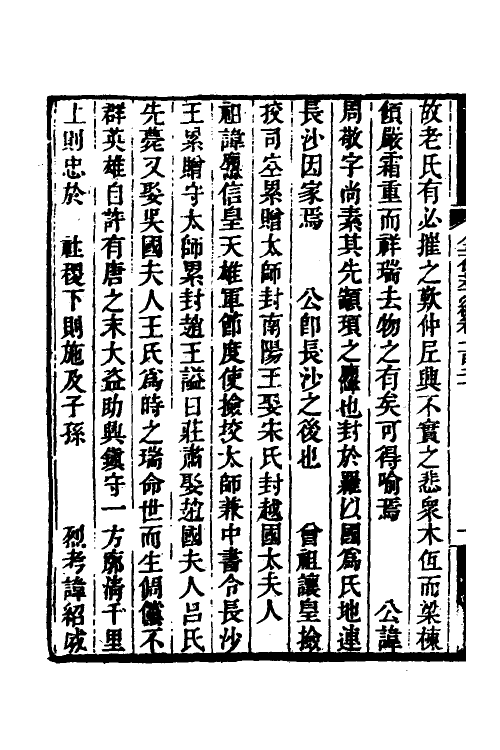 故老氏有必摧之歎仲尼興不實之悲衆木伍而梁棟
傾嚴霜重而祥瑞去物之有矣可得喻焉　公諱
周敬字尚素其先顓頊之胤也封於羅以國爲氏地連
長沙因家焉　公卽長沙之後也　曾祖讓皇檢
挍司空累贈太師封南陽王娶朱氏封越國太夫人
祖諱弘信皇天雄軍節度使撿挍太師兼中書令長沙
王累贈守太師累封趙王謚曰莊肅娶趙國夫人呂氏
先薨又娶吳國夫人王氏爲時之瑞命世而生倜儻不
群英雄自許有唐之末大盜助興鎭守一方廓淸千里
上則忠於　社稷下則施及子孫　烈考諱紹威